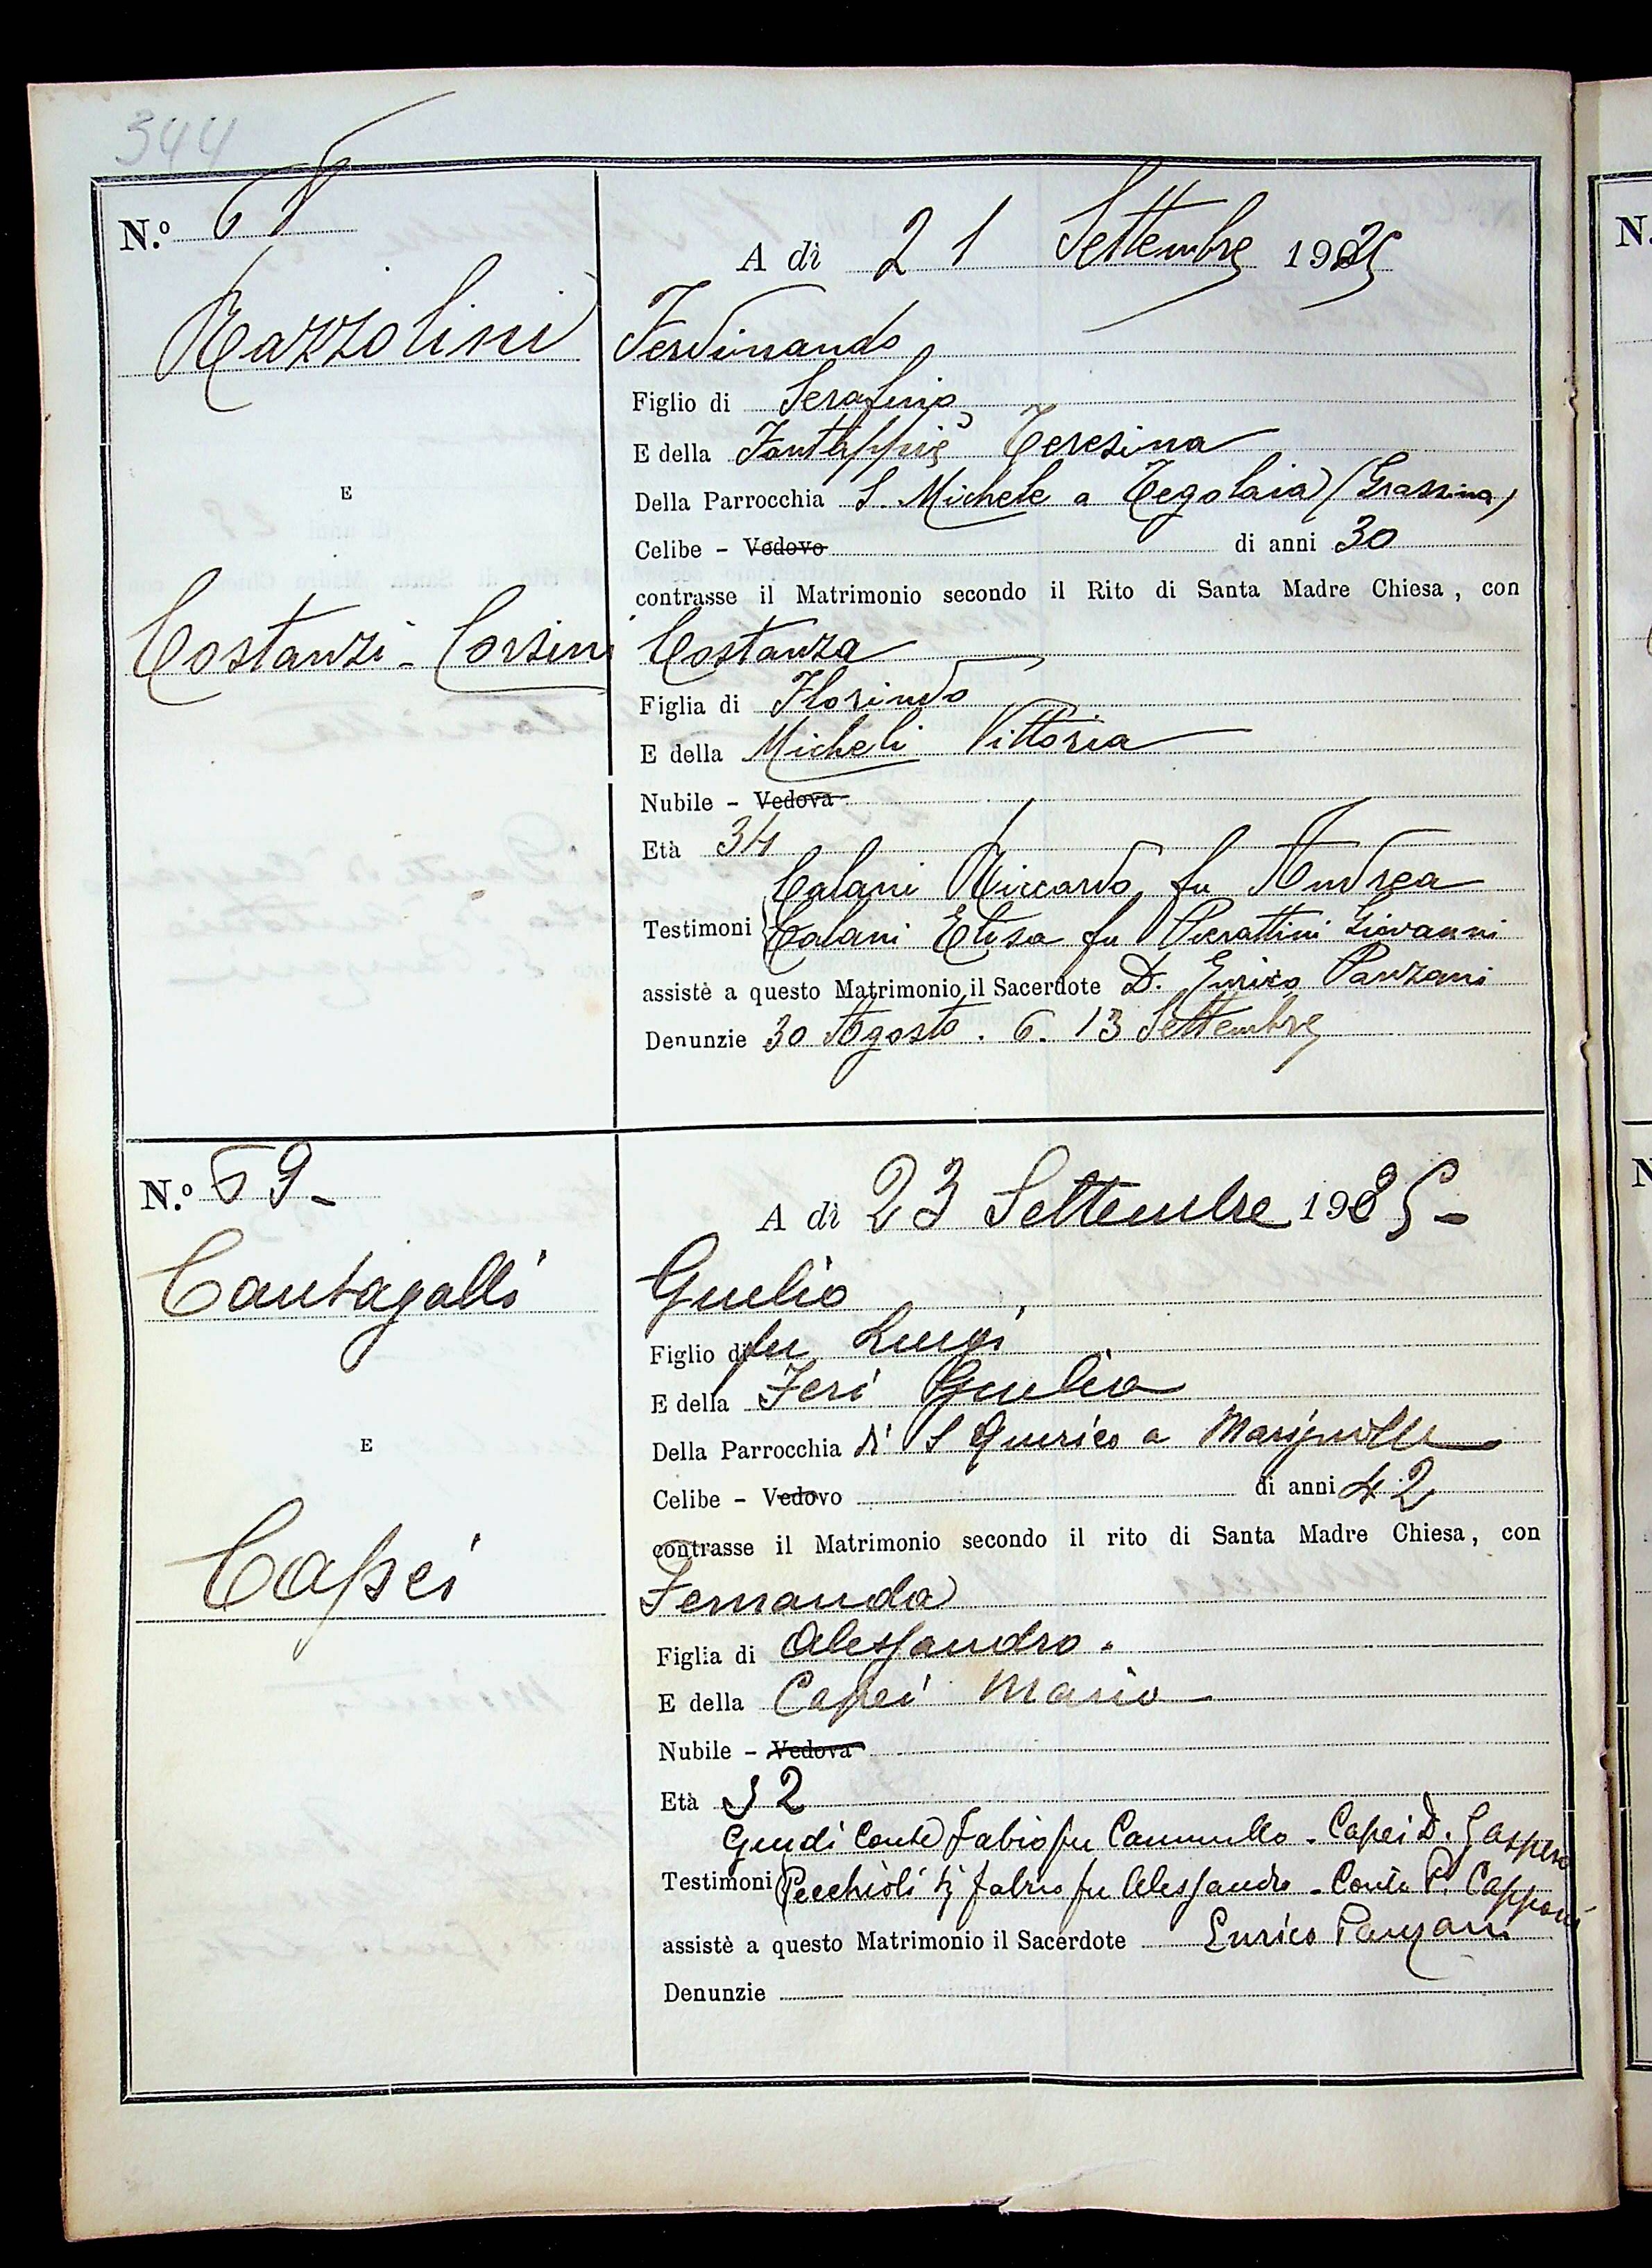 344
N.º 68
A dì 21 Settembre 1925
Razzolini
Ferdinando
Figlio di Serafino
E della Fantappiè Teresina
E
Della Parrocchia S. Michele a Tegolaia (Grassina)
Celibe - Vedovo di anni 30
contrasse il Matrimonio secondo il Rito di Santa Madre Chiesa, con
Costanzi - Corsini
Costanza
Figlia di Florindo
E della Micheli Vittoria
Nubile - Vedova
Età 34
Calani Riccardo fu Andrea
Testimoni Calani Elisa fu Pierattini Giovanni
assistè a questo Matrimonio il Sacerdote D. Enrico Panzani
Denunzie 30 Agosto . 6. 13 Settembre
N.º 69-
A dì 23 Settembre 1925-
Cantagalli
Guelio
Figlio di fu Luigi
E della Feri Giulia
E
Della Parrocchia di S Quirico a Marignolle
Celibe - Vedovo di anni 42
contrasse il Matrimonio secondo il rito di Santa Madre Chiesa, con
Capei
Fernanda
Figlia di Alessandro.
E della Capei Maria
Nubile - Vedova
Età 32
Guidi Conte Fabio fu Cammillo - Capei D. Gaspero
Testimoni Pecchioli fu Alessandro - Conte P. Capponi
assistè a questo Matrimonio il Sacerdote Enrico Panzani
Denunzie
N.
N